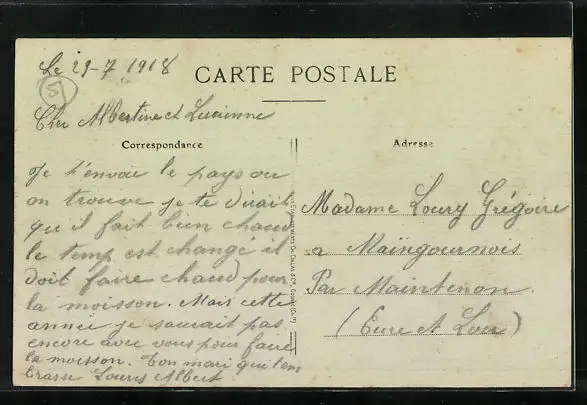 Le 29-7 1918
CARTE POSTALE
Cher Albertine et Lucienne
Correspondance
Adresse
Je t'envoie le pays ou
on trouve je te dirait
qu'il fait bien chaud
le temp est changé il
doit faire chaud pour
la moisson. Mais cette
année je saurait pas
encore avec vous pour faire
la moisson. Ton mari qui t'em
brasse Loury Albert
Madame Loury Grégoire
a Maingournois
Par Maintenon.
(Eure et Loir)